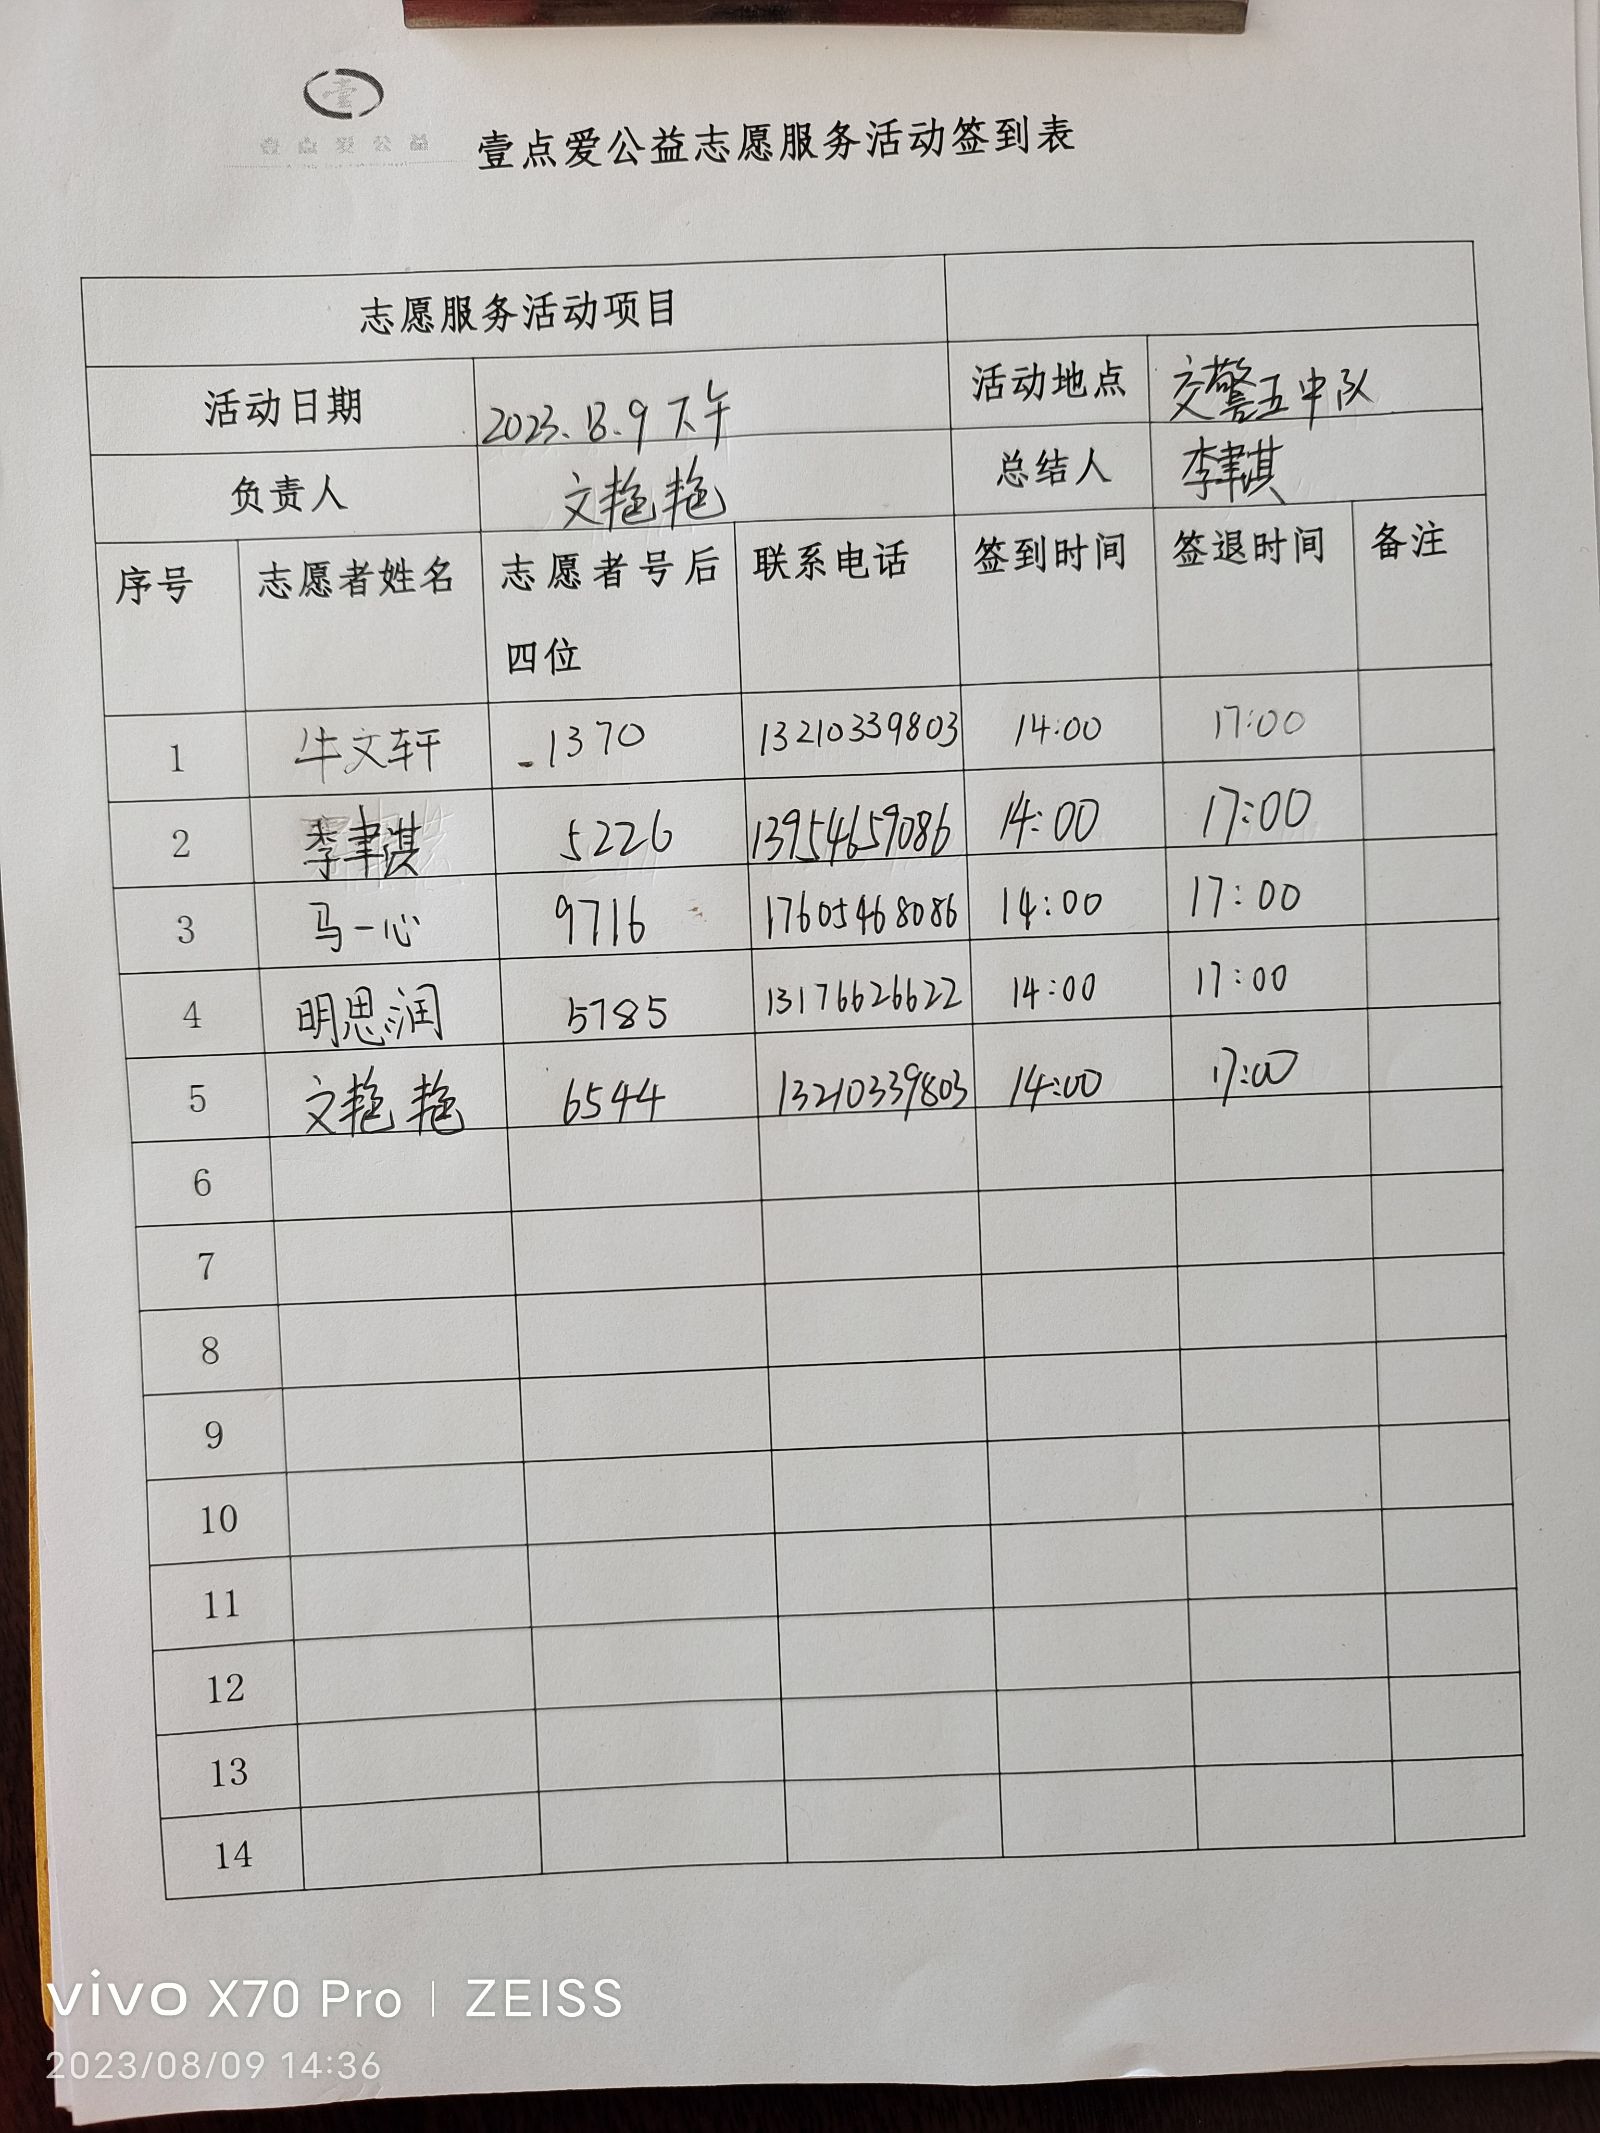 壹
壹点爱公益志愿服务活动签到表
志愿服务活动项目
活动日期 2023.8.9下午 活动地点 交警五中队
负责人 文艳艳 总结人 李聿淇
序号 志愿者姓名 志愿者号后四位 联系电话 签到时间 签退时间 备注
1 牛文轩 1370 13210339803 14:00 17:00
2 李聿淇 5226 13954659086 14:00 17:00
3 马一心 9716 17605468086 14:00 17:00
4 明思润 5785 13176626622 14:00 17:00
5 文艳艳 6544 13210339803 14:00 17:00
6
7
8
9
10
11
12
13
14
vivo X70 Pro | ZEISS
2023/08/09 14:36